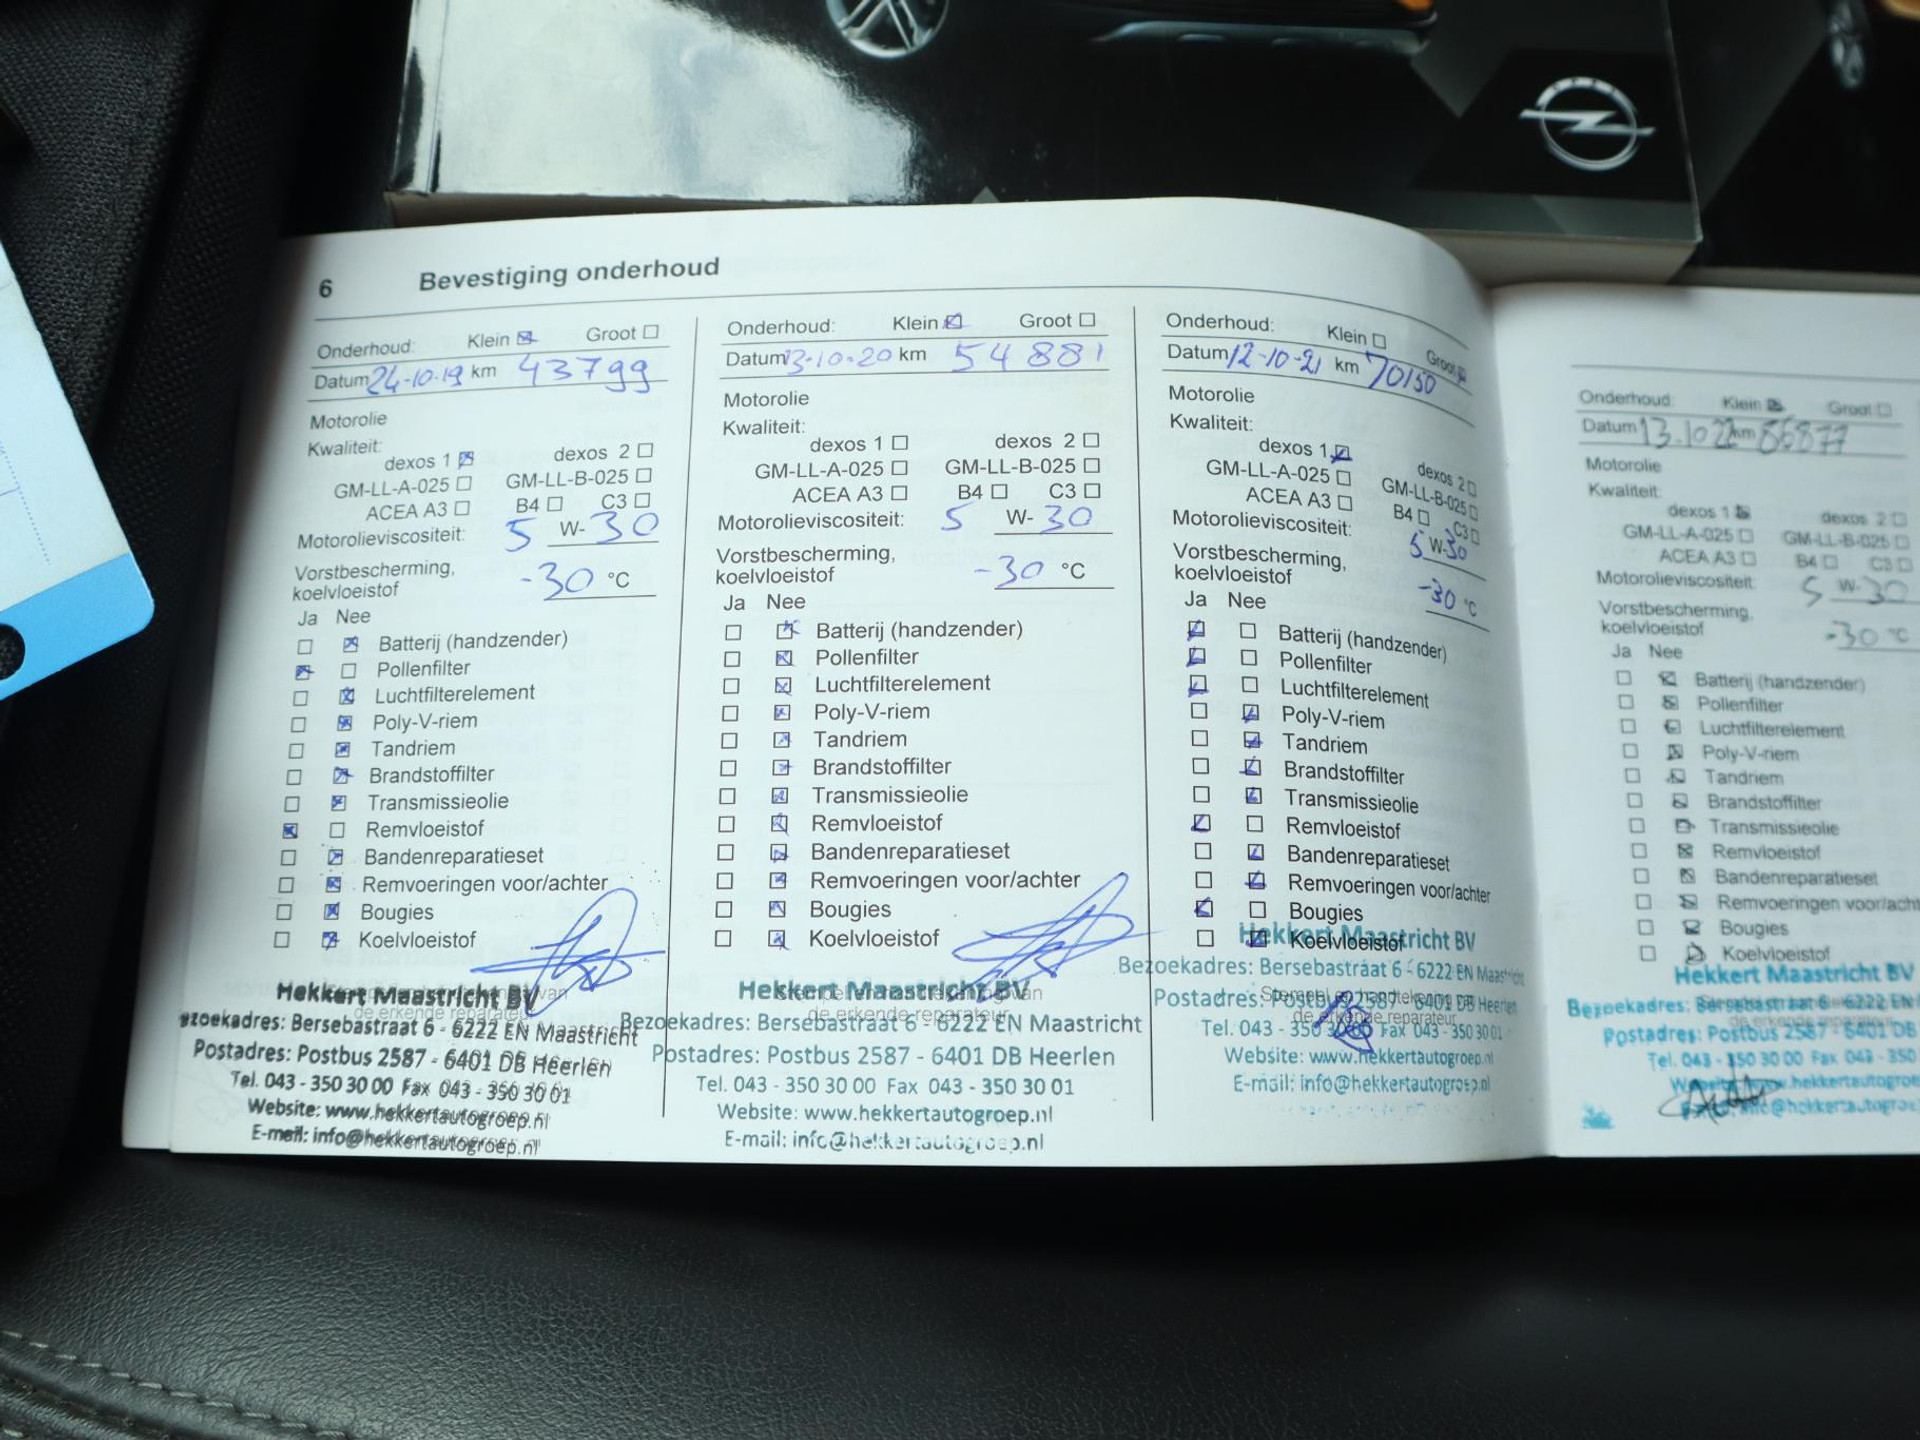 6 Bevestiging onderhoud
Onderhoud: Klein Groot
Datum 24-10-19 km 43799
Motorolie
Kwaliteit:
dexos 1 dexos 2
GM-LL-A-025 GM-LL-B-025
ACEA A3 B4 C3
Motorolieviscositeit: 5 W- 30
Vorstbescherming,
koelvloeistof -30 °C
Ja Nee
Batterij (handzender)
Pollenfilter
Luchtfilterelement
Poly-V-riem
Tandriem
Brandstoffilter
Transmissieolie
Remvloeistof
Bandenreparatieset
Remvoeringen voor/achter
Bougies
Koelvloeistof
Hekkert Maastricht BV
de erkende reparateur
Bersebastraat 6 - 6222 EN Maastricht
Postadres: Postbus 2587 - 6401 DB Heerlen
Tel. 043 - 350 30 00 Fax 043 - 350 30 01
Website: www.hekkertautogroep.nl
E-mail: info@hekkertautogroep.nl
Onderhoud: Klein Groot
Datum 13-10-20 km 54881
Motorolie
Kwaliteit:
dexos 1 dexos 2
GM-LL-A-025 GM-LL-B-025
ACEA A3 B4 C3
Motorolieviscositeit: 5 W- 30
Vorstbescherming,
koelvloeistof -30 °C
Ja Nee
Batterij (handzender)
Pollenfilter
Luchtfilterelement
Poly-V-riem
Tandriem
Brandstoffilter
Transmissieolie
Remvloeistof
Bandenreparatieset
Remvoeringen voor/achter
Bougies
Koelvloeistof
Hekkert Maastricht BV
de erkende reparateur
Bezoekadres: Bersebastraat 6 - 6222 EN Maastricht
Postadres: Postbus 2587 - 6401 DB Heerlen
Tel. 043 - 350 30 00 Fax 043 - 350 30 01
Website: www.hekkertautogroep.nl
E-mail: info@hekkertautogroep.nl
Onderhoud: Klein Groot
Datum 12-10-21 km 70150
Motorolie
Kwaliteit:
dexos 1 dexos 2
GM-LL-A-025 GM-LL-B-025
ACEA A3 B4 C3
Motorolieviscositeit: 5 W-30
Vorstbescherming,
koelvloeistof -30 °C
Ja Nee
Batterij (handzender)
Pollenfilter
Luchtfilterelement
Poly-V-riem
Tandriem
Brandstoffilter
Transmissieolie
Remvloeistof
Bandenreparatieset
Remvoeringen voor/achter
Bougies
Koelvloeistof
Hekkert Maastricht BV
Bezoekadres: Bersebastraat 6 - 6222 EN Maastricht
Postadres: Postbus 2587 - 6401 DB Heerlen
Stempel en handtekening van
de erkende reparateur
Tel. 043 - 350 30 00 Fax 043 - 350 30 01
Website: www.hekkertautogroep.nl
E-mail: info@hekkertautogroep.nl
Onderhoud: Klein Groot
Datum 13.10 22 km 86877
Motorolie
Kwaliteit:
dexos 1 dexos 2
GM-LL-A-025 GM-LL-B-025
ACEA A3 B4 C3
Motorolieviscositeit: 5 W- 30
Vorstbescherming,
koelvloeistof -30 °C
Ja Nee
Batterij (handzender)
Pollenfilter
Luchtfilterelement
Poly-V-riem
Tandriem
Brandstoffilter
Transmissieolie
Remvloeistof
Bandenreparatieset
Remvoeringen
Bougies
Koelvloeistof
Hekkert Maastricht BV
Bezoekadres: Bersebastraat 6 - 6222 EN
Postadres: Postbus 2587 - 6401 DB
Tel. 043 - 350 30 00 Fax 043 - 350